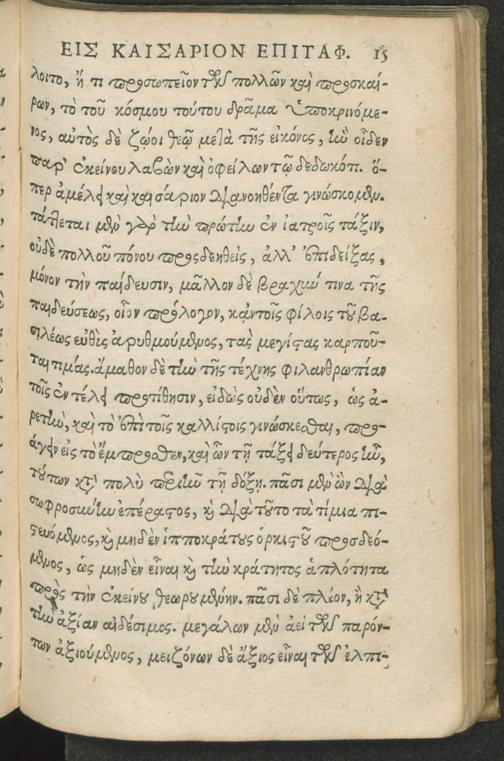 ΕΙΣ ΚΑΙΣΑΡΙΟΝ ΕΠΙΤΑΦ. 15
λοιτο, ἤ τι προσωπεῖον τῶν πολλῶν καὶ προσκαί-
ρων, τὸ τοῦ κόσμου τούτου δρᾶμα ὑποκρινόμε-
νος, αὐτὸς δὲ ζώοι θεῷ μετὰ τῆς εἰκόνος, ἣν οἶδεν
παρ' ἐκείνου λαβὼν καὶ ὀφείλων τῷ δεδωκότι. ὅ-
περ ἀμέλει καὶ καισάριον διανοηθέντα γινώσκομεν.
τάττεται μὲν γὰρ τὴν πρώτην ἐν ἰατροῖς τάξιν,
οὐδὲ πολλοῦ πόνου προσδεηθεὶς, ἀλλ' ἐπιδείξας,
μόνον τὴν παίδευσιν, μᾶλλον δὲ βραχύν τινα τῆς
παιδεύσεως, οἷον πρόλογον, κἀν τοῖς φίλοις τοῦ βα-
σιλέως εὐθὺς ἀριθμούμενος, τὰς μεγίστας καρποῦ-
ται τιμάς. ἄμισθον δὲ τὴν τῆς τέχνης φιλανθρωπίαν
τοῖς ἐν τέλει προτίθησιν, εἰδὼς οὐδὲν οὕτως, ὡς ἀ-
ρετὴν, καὶ τὸ ἐπὶ τοῖς καλλίστοις γινώσκεσθαι, προ-
άγειν εἰς τὸ ἔμπροσθεν, καὶ ὧν τῇ τάξει δεύτερος ἦν,
τούτων κατὰ πολὺ περιῆν τῇ δόξῃ. πᾶσι μὲν ὢν διὰ
σωφροσύνην ἐπέραστος, καὶ διὰ τοῦτο τὰ τίμια πι-
στευόμενος, καὶ μηδὲν ἱπποκράτους ὁρκιστοῦ προσδεό-
μενος, ὡς μηδὲν εἶναι καὶ τὴν κράτητος ἁπλότητα
πρὸς τὴν ἐκείνου θεωρουμένην. πᾶσι δὲ πλέον, ἢ κατὰ
τὴν ἀξίαν αἰδέσιμος. μεγάλων μὲν ἀεὶ τῶν παρόν-
των ἀξιούμενος, μειζόνων δὲ ἄξιος εἶναι τῶν ἐλπι-